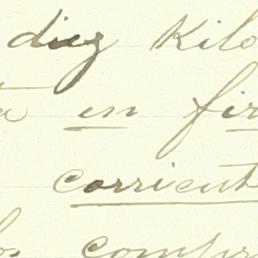 diez Kilo
en fir
corrient
los compr